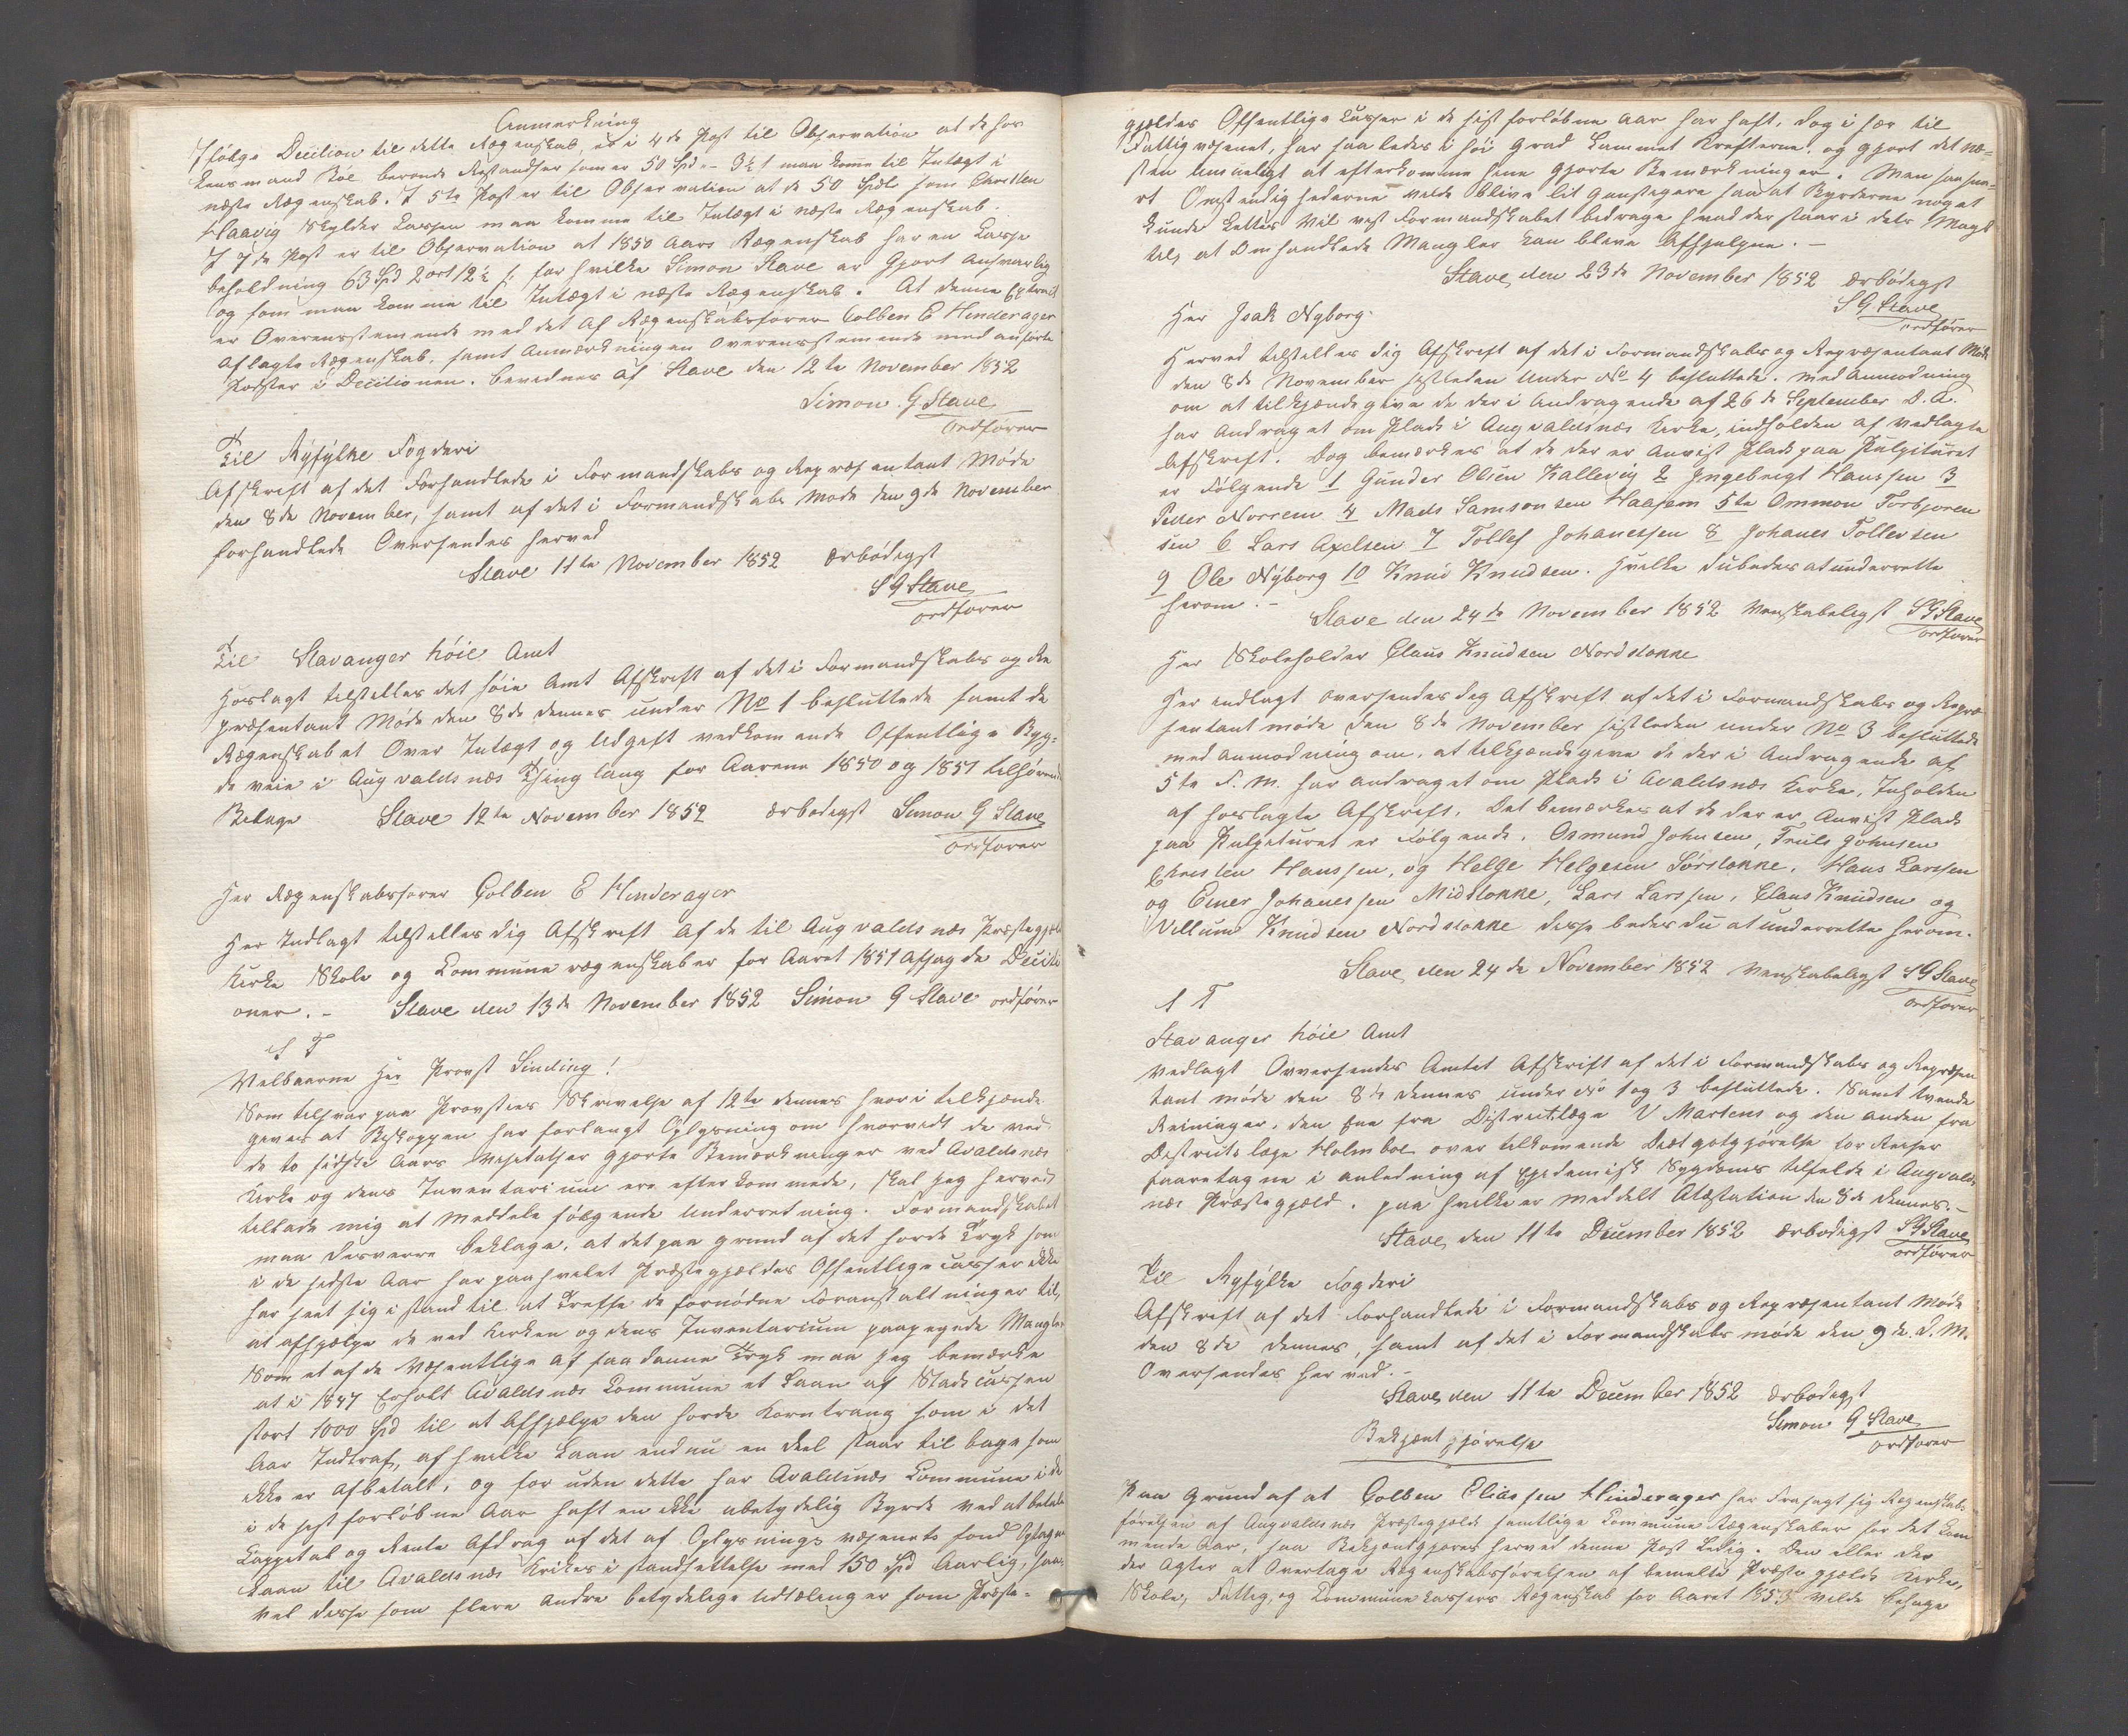 Anmærkning
Ifølge Decition til dette Regenskab, er i 4de Post til Observation at de hos
Lensmand Boe beroende Restandser som er 50 Spd - 3½ s maa kome til Indtægt i
næste Regenskab. I 5te Post er til Observation at de 50 Spdlr som Carsten
Haavig skylder Cassen maa komme til Indtægt i næste Regenskab.
I 7de Post er til Observation at 1850 Aars Regenskab har en Casse
beholdning 63 Spd 2 ort 12½ s; for hvilke Simon Stave er Gjort Ansvarlig
og som maa komme til Indtægt i næste Regenskab. At denne Extract
er Overensstemende med det af Regenskabsfører Colben E Hinderager
aflagte Regenskab, samt Anmærkningen Overensstemende med anførte
Poster i Decitionen. bevidnes af Stave den 12te November 1852
Simon G. Stave
Ordfører
Til Ryfylke Fogderi
Afskrift af det Forhandlede i Formandskabs og Repræsentant Møde
den 8de November, samt af det i Formandskabs Møde den 9de November
forhandlede Oversendes herved
Stave 11te November 1852 ærbødigst
S G Stave
ordfører
Til Stavanger høie Amt
Hoslagt tilstilles det høie Amt Afskrift af det i Formandskabs og Re
præsentant Møde den 8de dennes under No 1 besluttede samt de
Regenskabet Over Indtægt og Udgift vedkomende Offentlige Byg=
de veie i Augvaldsnæs Thinglaug for Aarene 1850 og 1851 tilhørende
Bilage Stave 12te November 1852 ærbødigst Simon G Stave
ordfører
Her Regenskabsfører Colben E Hinderager
Her Indlagt tilstilles dig Afskrift af de til Augvaldsnæs Præstegjælds
Kirke Skole og Commune regenskaber for Aaret 1851 Afsagde Deciti
oner. - Stave den 13de November 1852 Simon G Stave ordfører
S T
Velbaarne Her Provst Sinding!
Som tilsvar paa Provstens Skrivelse af 12te dennes hvori tilkjænde
gives at Biskoppen har forlangt Oplysning om hvorvidt de ved
de to sidste Aars Visitatser gjorte Bemærkninger ved Avaldsnæs
Kirke og dens Inventarium ere efterkommede, skal jeg herved
tillade mig at Meddele følgende Underretning. Formandskabet
maa desverre beklage, at det paa grund af det haarde Tryk som
i de sidste Aar har paahvilet Præstegjældes Offentlige casser ikke
har seet sig i stand til at Treffe de fornødne Foranstaltninger til,
at afhjælpe de ved Kirken og dens Inventarium paapegede Mangler
Som et af de Væsentlige af saadanne Tryk maa jeg bemærke
at i 1847 Erholt Avaldsnæs Commune et Laan af Stadscassen
stort 1000 Spd til at Afhjælpe den haarde Korntrang som i det
Aar Indtraf, af hvilke Laan endnu en deel staar tilbage som
ikke er Afbetalt, og for uden dette har Avaldsnæs Commune i de
i de sist forløbne Aar haft en ikke ubetydelig Byrde ved at betale
Cappital og Rente Afdrag af det af Oplysnings væsenets fond Optagne
Laan til Avaldsnæs Kirkes i standsettelse med 150 Spd Aarlig, saa
vel disse som flere Andre betydelige Udtællinger som Præste-
gjeldes Offentlige Casser i de sist forløbne Aar har haft, dog i sær til
Fattigvæsenet, har saaledes i høi grad Lammet Kræfterne, og gjort det næ=
sten umueligt at efterkomme hine gjorte Bemærkninger. Man saasna=
rt Omstændighederne vilde blive lit Gunstigere saa at Byrderne noget
kunde Lettes Vil vist Formandskabet bidrage hvad der staar i dets Magt
til, at Omhandlede Mangler kan blive Afhjulpne. -
Stave, den 23de November 1852 ærbødigst
S G Stave
ordfører
Her Isak Nyborg.
Herved tilstilles dig Afskrift af det i Formandskabs og Repræsentant Møde
den 8de November sistleden Under No 4 besluttede. med Anmodning
om at tilkjændegive de der i Andragende af 26de September d. A.
har Andraget om Plads i Augvaldsnæs Kirke, indholden af vedlagte
Afskrift. Dog bemærkes at de der er Anvist Plads paa Pulpituret
er Følgende 1 Gunder Olsen Kallevig 2 Ingebrigt Hanssen 3
Peder Norrem 4 Mads Samsonsen Haasem 5te Ommon Torbjoren
sen 6 Lars Axelsen 7 Tollef Johanessen 8 Johanes Tollevsen
9 Ole Nyborg 10 Knud Knudsen. Hvilke du bedes at underrette
herom. -
Stave den 24de November 1852 Venskabeligst S G Stave
ordfører
Her Skoleholder Claus Knudsen Nordstokke
Her indlagt oversendes dig Afskrift af det i Formandskabs og Repræ
sentant møde den 8de November sistleden under No 3 besluttede
med Anmodning om, at tilkjændegive de der i Andragende af
5te f. M. har andraget om Plads i Avaldsnæs Kirke, Inholden
af hoslagte Afskrift. Det bemærkes at de der er Anvist Plads
paa Pulpituret er Følgende. Osmund Johnsen, Truls Johnsen
Christen Hanssen, og Helge Helgesen Sørstokke, Hans Larssen
og Einer Johanessen Midstokke, Lars Larssen, Claus Knudsen og
Villum Knudsen Nordstokke disse bedes du at underrette herom.
Stave, den 24de November 1852 Venskabeligst S G Stave
Ordfører
S T
Stavanger høie Amt
Vedlagt Oversendes Amtet Afskrift af det i Formandskabs og Repræsen
tant møde den 8de dennes under No 1 og 3 besluttede. Samt tvende
Reininger, den Ene fra Districtslæge V Martens og den anden fra
Districts læge Holmboe over tilkomende Diætgotgjørelse for Reiser
foretagne i anledning af Epedemisk Sygdoms tilfælde i Augvalds
næs Præstegjæld. paa hvilke er meddelt Attæstation den 8de dennes. -
Stave, den 11te December 1852 ærbødigst S G Stave
ordfører
Til Ryfylke Fogderi
Afskrift af det Forhandlede i Formandskabs og Repræsentant Møde
den 8de dennes, samt af det i Formandskabs møde den 9de d. M.
Oversendes herved. -
Stave, den 11te December 1852 ærbødigst
Simon G Stave
ordfører
Bekjentgjørelse
Paa Grund af at Colben Eliassen Hinderager har Frasagt sig Regenskabs
førelsen af Augvaldsnæs Præstegjælds samtlige Commune Regenskaber for det kom
mende Aar, saa Bekjendtgjøres herved denne Post Ledig. Den eller der
der Agter at Overtage Regenskabsførelsen af bemelte Præstegjælds Kirke,
Skole, Fattig, og Commune kassers Regenskab for Aaret 1853 vilde behage